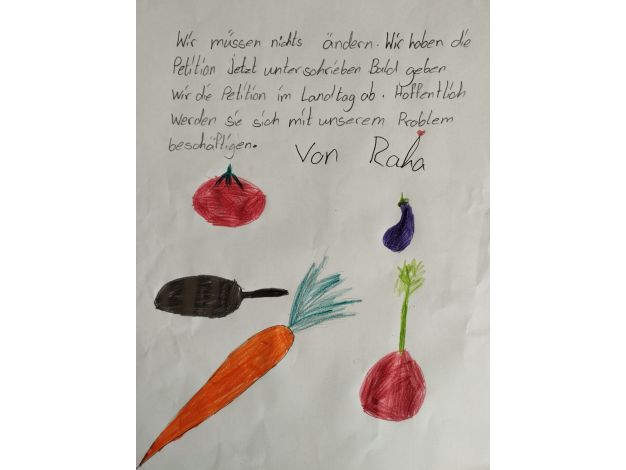 Wir müssen nichts ändern. Wir haben die
Petition Jetzt unterschrieben Bald geben
Wir die Petition im Landtag ab. Hoffentlich
Werden sie sich mit unserem Problem
beschäftigen.
Von Raha